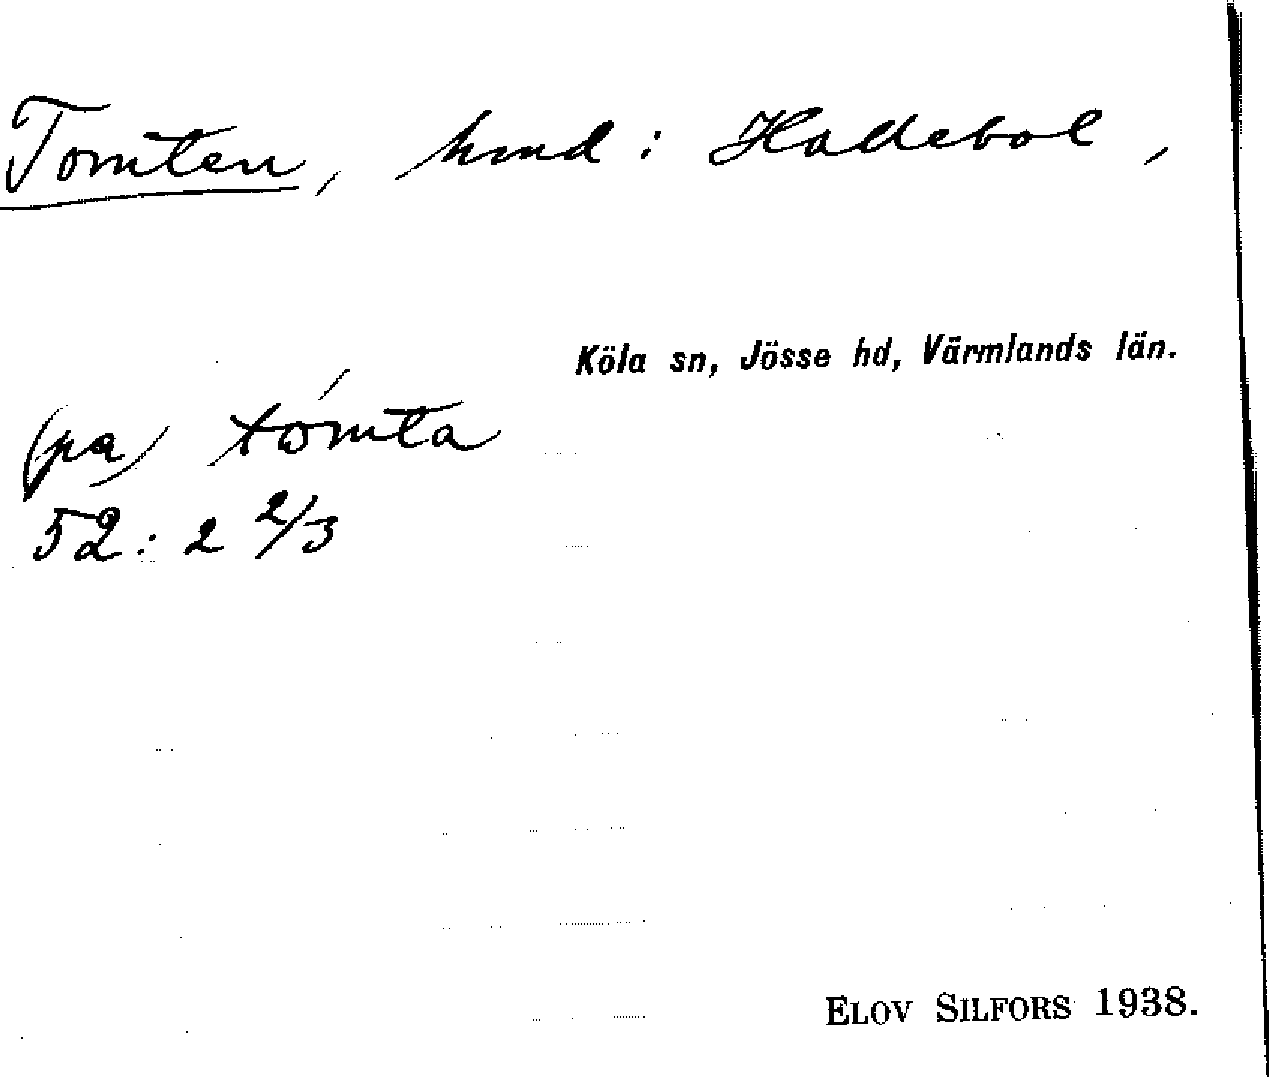 Tomten, hmd i Hadebol,
Köla sn, Jösse hd, Värmlands län.
(pa) tómta
52:2 2/3
ELOV SILFORS 1938.